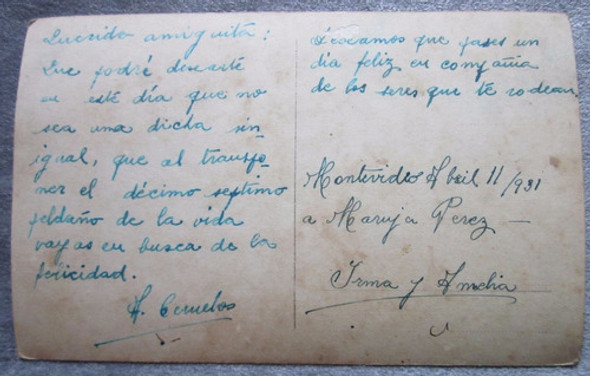 Querida amiguita:
Que podré desearte
en este día que no
sea una dicha sin
igual, que al transpo
ner el décimo septimo
peldaño de la vida
vayas en busca de la
felicidad.
A.
Deseamos que pases un
día feliz en compañia
de los seres que te rodean,
Montevideo Abril 11/931
a Maruja Perez —
Irma y Amelia